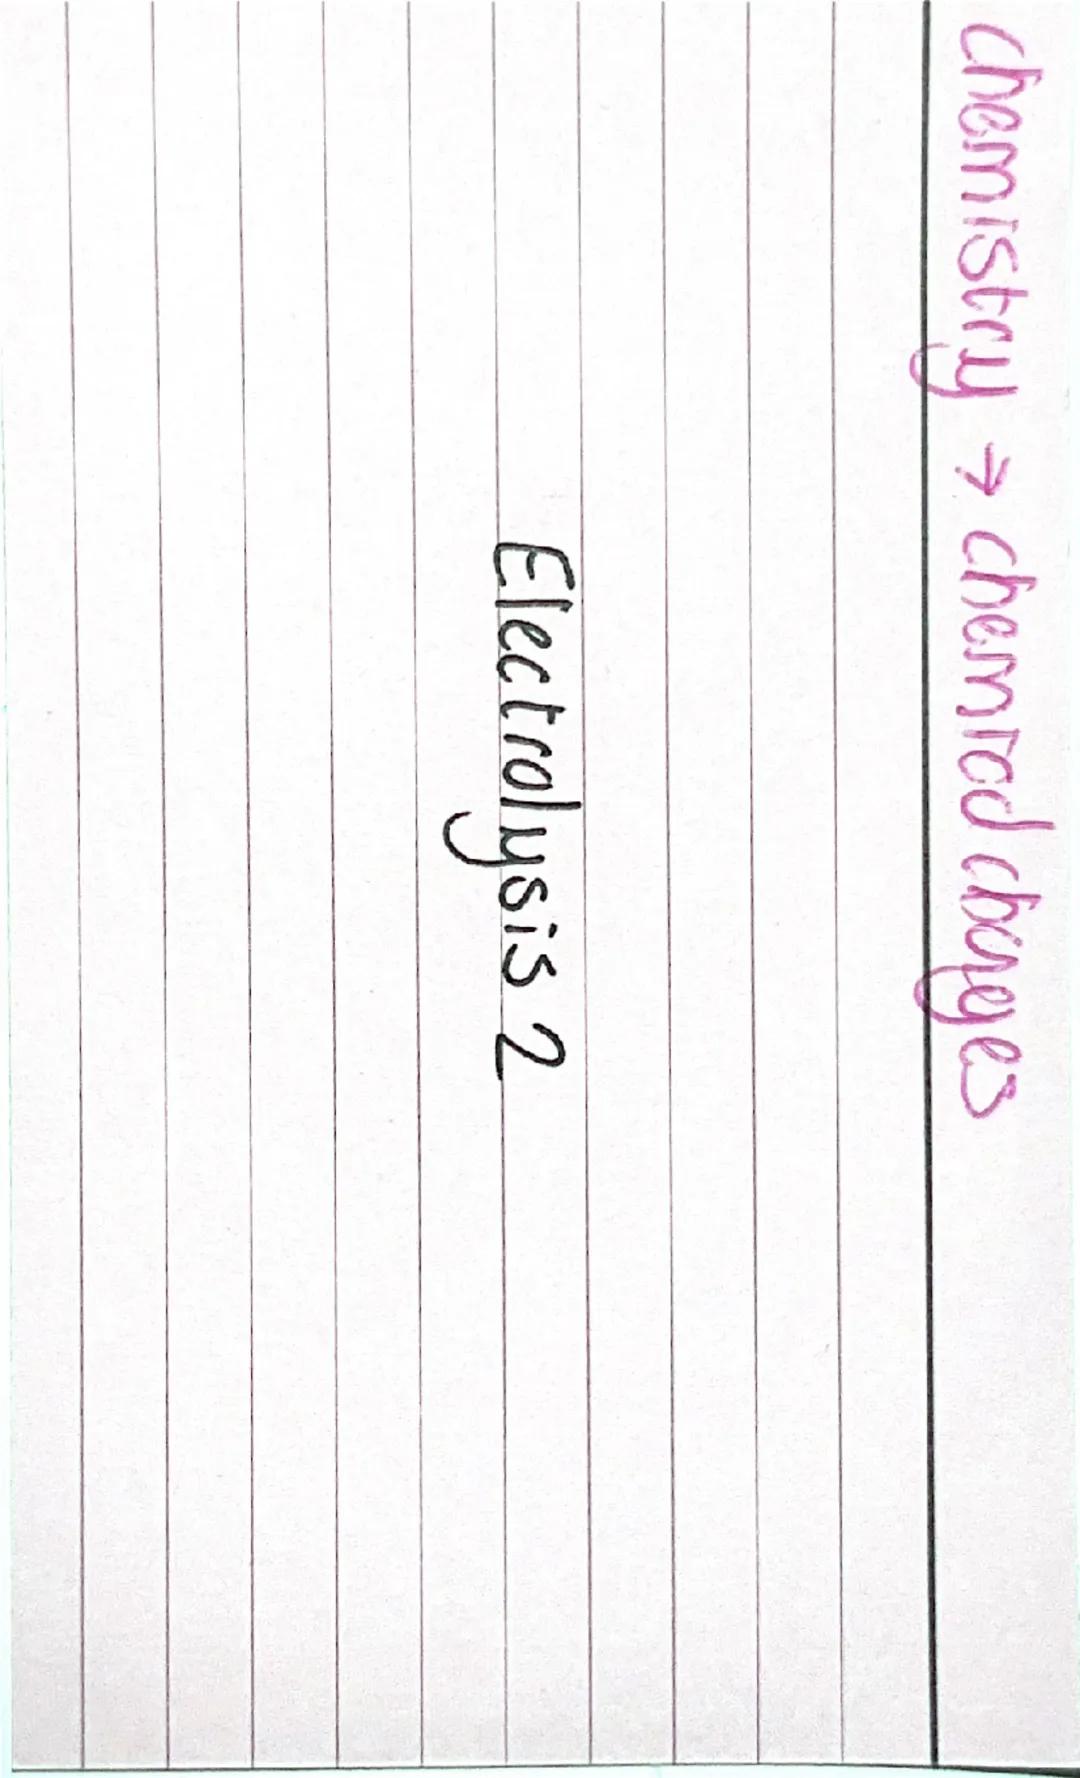 chemistry → chemical changes
Electrolysis 2